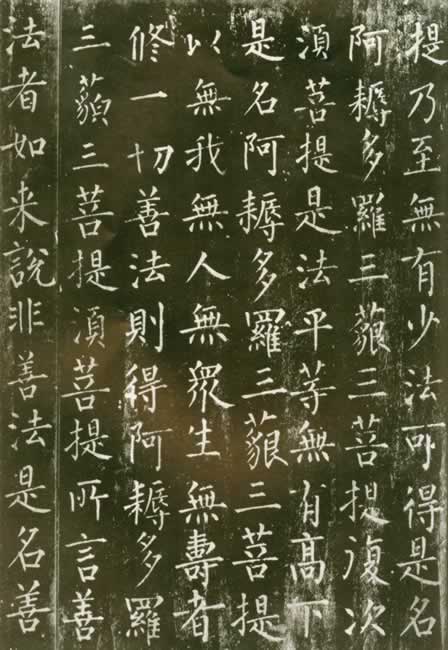 提乃至無有少法可得是名
阿耨多羅三藐三菩提復次
須菩提是法平等無有高下
是名阿耨多羅三藐三菩提
以無我無人無眾生無壽者
修一切善法則得阿耨多羅
三藐三菩提須菩提所言善
法者如来說非善法是名善